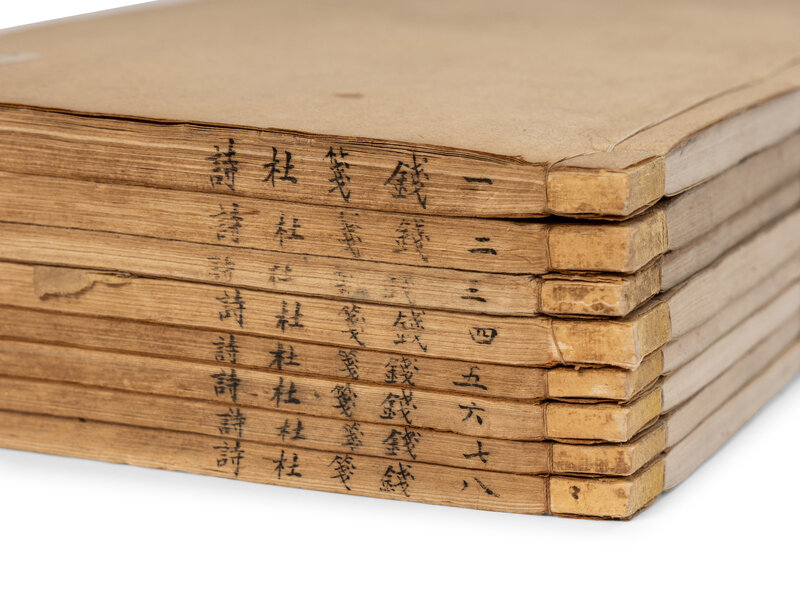 一錢箋杜詩
二錢箋杜詩
三錢箋杜詩
四錢箋杜詩
五錢箋杜詩
六錢箋杜詩
七錢箋杜詩
八錢箋杜詩